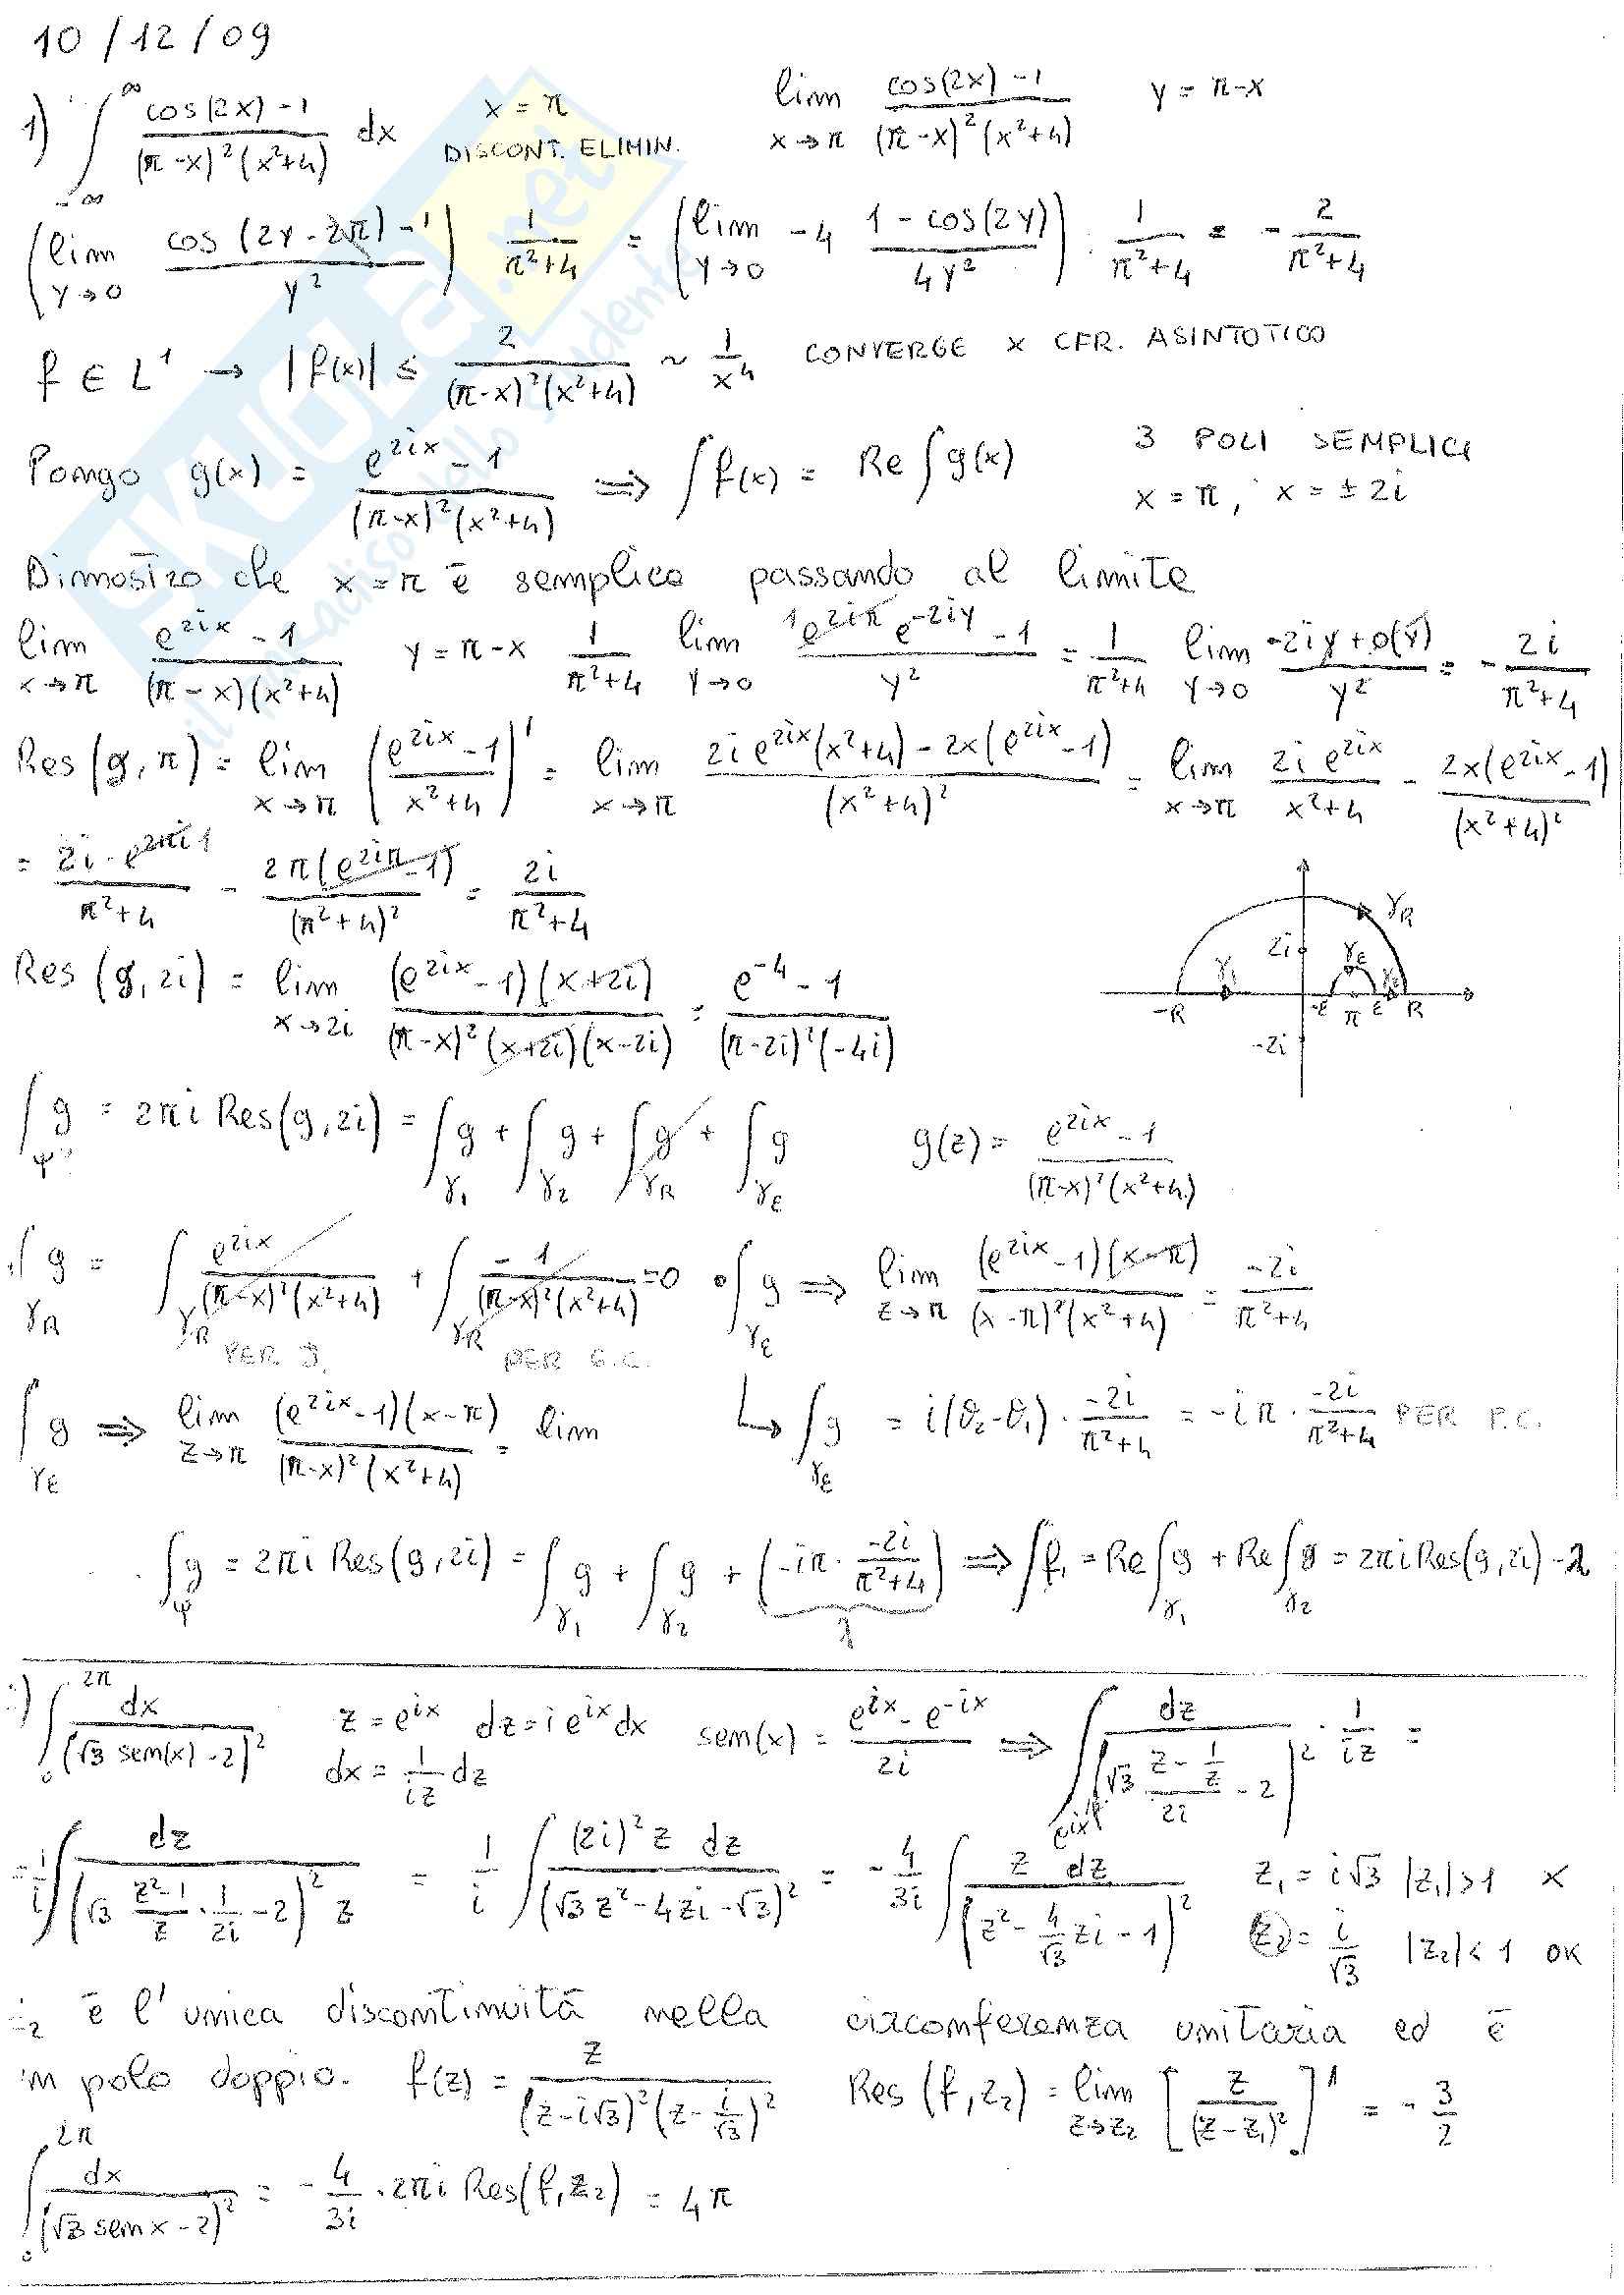 10/12/09
1) ∫_{-∞}^{∞} (cos(2x)-1)/((π-x)²(x²+4)) dx   x = π DISCONT. ELIMIN.   lim_{x→π} (cos(2x)-1)/((π-x)²(x²+4))   y = π-x
(lim_{y→0} (cos(2y-2π)-1)/y²) 1/(π²+4) = (lim_{y→0} -4 (1-cos(2y))/(4y²)) · 1/(π²+4) = - 2/(π²+4)
f ∈ L¹ → |f(x)| ≤ 2/((π-x)²(x²+4)) ~ 1/x⁴ CONVERGE x CFR. ASINTOTICO
Pongo g(x) = (e^{2ix}-1)/((π-x)²(x²+4)) ⟹ ∫f(x) = Re∫g(x)   3 POLI SEMPLICI
x = π, x = ±2i
Dimostro che x=π è semplice passando al limite
lim_{x→π} (e^{2ix}-1)/((π-x)(x²+4))   y = π-x   1/(π²+4) lim_{y→0} (e^{2iπ} e^{-2iy} -1)/y² = 1/(π²+4) lim_{y→0} (-2iy+o(y))/y² = - 2i/(π²+4)
Res(g,π) = lim_{x→π} ((e^{2ix}-1)/(x²+4))' = lim_{x→π} (2i e^{2ix}(x²+4) - 2x(e^{2ix}-1))/(x²+4)² = lim_{x→π} 2i e^{2ix}/(x²+4) - 2x(e^{2ix}-1)/(x²+4)²
= 2i·e^{2πi} 1/(π²+4) - 2π(e^{2iπ}-1)/(π²+4)² = 2i/(π²+4)
γ_R 2i γ_1 γ_ε γ_2
-R -ε π ε R
-2i
Res(g,2i) = lim_{x→2i} (e^{2ix}-1)(x+2i)/((π-x)²(x+2i)(x-2i)) = (e^{-4}-1)/((π-2i)²(-4i))
∫_φ g = 2πi Res(g,2i) = ∫_{γ1} g + ∫_{γ2} g + ∫_{γR} g + ∫_{γε} g   g(z) = (e^{2ix}-1)/((π-x)²(x²+4))
∫_{γR} g = ∫_{γR} e^{2ix}/((π-x)²(x²+4)) + ∫_{γR} -1/((π-x)²(x²+4)) = 0   • ∫_{γε} g ⟹ lim_{z→π} (e^{2ix}-1)(x-π)/((x-π)²(x²+4)) = -2i/(π²+4)
PER J.   PER G.C.
∫_{γε} g ⟹ lim_{z→π} (e^{2ix}-1)(x-π)/((π-x)²(x²+4)) = lim   ↳ ∫_{γε} g = i(θ₂-θ₁)· -2i/(π²+4) = -iπ· -2i/(π²+4) PER P.C.
∫_φ g = 2πi Res(g,2i) = ∫_{γ1} g + ∫_{γ2} g + (-iπ· -2i/(π²+4)) ⟹ ∫f₁ = Re∫_{γ1} g + Re∫_{γ2} g = 2πi Res(g,2i) - λ
λ
) ∫_0^{2π} dx/(√3 sen(x)-2)²   z = e^{ix}   dz = i e^{ix} dx   sen(x) = (e^{ix}-e^{-ix})/2i ⟹ ∫_{e^{ix}} dz/(√3 (z-1/z)/2i - 2)² · 1/iz =
dx = 1/iz dz
= 1/i ∫ dz/((√3 (z²-1)/z · 1/2i - 2)² z) = 1/i ∫ (2i)² z dz/(√3 z² - 4zi - √3)² = - 4/3i ∫ z dz/(z² - 4/√3 zi - 1)²   z₁ = i√3 |z₁|>1 x
z₂ = i/√3 |z₂|<1 OK
z₂ è l'unica discontinuità nella circonferenza unitaria ed è
un polo doppio. f(z) = z/((z-i√3)²(z-i/√3)²)   Res(f,z₂) = lim_{z→z₂} [z/(z-z₁)²]' = - 3/2
∫_0^{2π} dx/(√3 sen x - 2)² = - 4/3i · 2πi Res(f,z₂) = 4π
SKUOLA.net
il paradiso dello studente